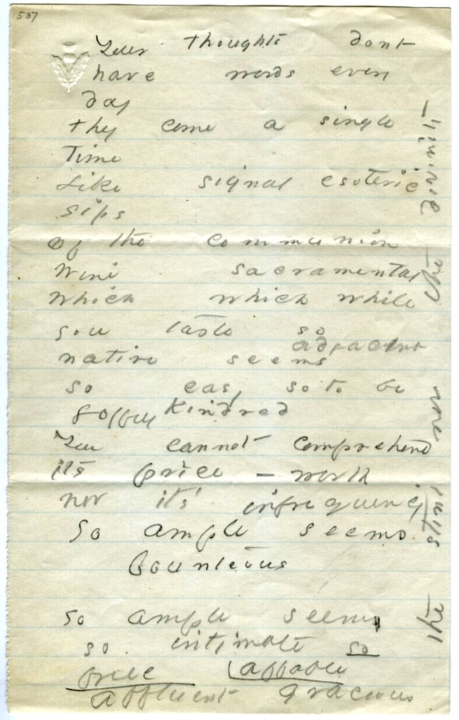 537
Your thoughts dont
have words every
day
they come a single
time
Like signal esoteric
sips
of the communion
Wine sacramental
Which which while
you taste so
adjacent
native seems
so easy so to be
so free kindred
You cannot comprehend
its price – worth
nor it's infrequency
So ample seems
bounteous
so ample seems
so intimate so
free affable
affluent gracious
the stint nor the divinity –